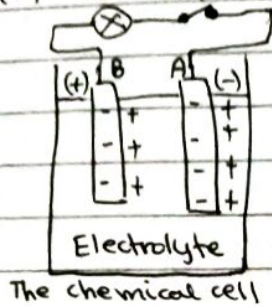 (+) B A (-)
- + - +
- + - +
- + - +
- +
Electrolyte
The chemical cell